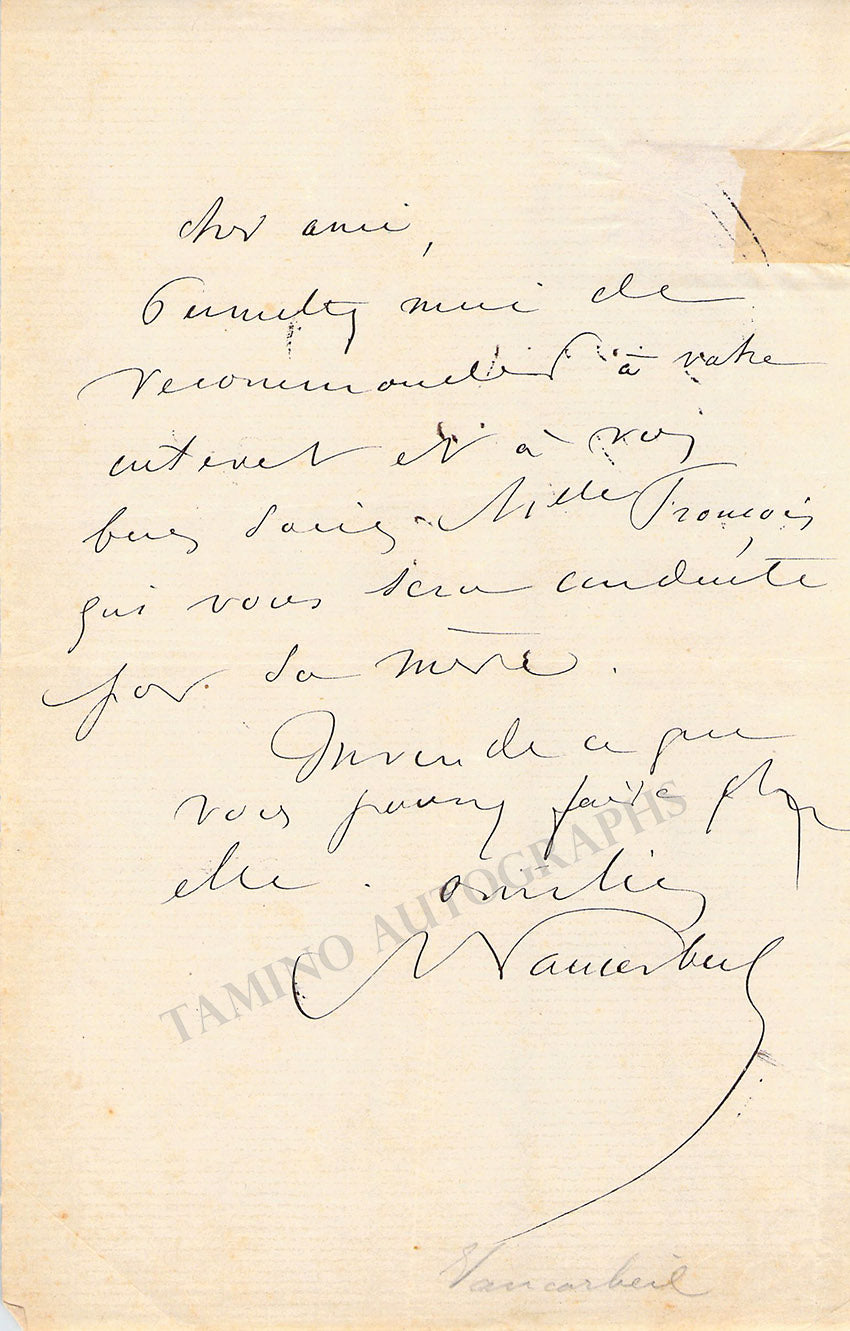 cher ami,
Permettez moi de
recommander à votre
interet et à vos
bons soins Mlle François
qui vous sera conduite
par sa mère.
de ce que
vous pouvez faire pour
elle. amitiés
Vaucorbeil
TAMINO AUTOGRAPHS
Vaucorbeil